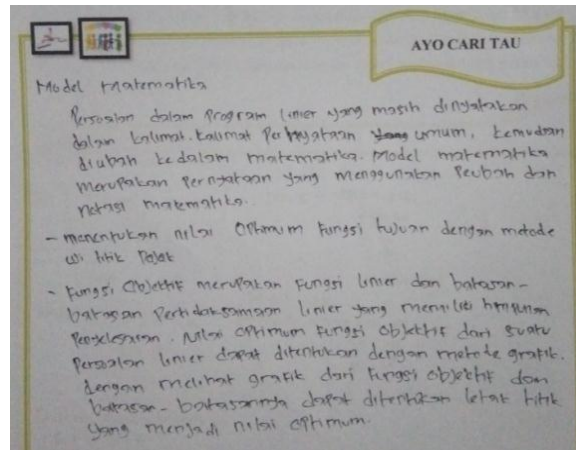 AYO CARI TAU
Model Matematika
Persoalan dalam Program linier yang masih dinyatakan
dalam kalimat-kalimat Pernyataan umum, kemudian
diubah kedalam matematika. Model matematika
merupakan Pernyataan yang menggunakan Peubah dan
notasi matematika.
- menentukan nilai Optimum Fungsi tujuan dengan metode
uji titik Pojok
- Fungsi Objektif merupakan Fungsi linier dan batasan-
batasan Pertidaksamaan linier yang memiliki himpunan
Penyelesaian. Nilai optimum Fungsi objektif dari suatu
Persoalan linier dapat ditentukan dengan metode grafik.
dengan melihat grafik dari Fungsi objektif dan
batasan-batasannya dapat ditentukan letak titik
yang menjadi nilai optimum.